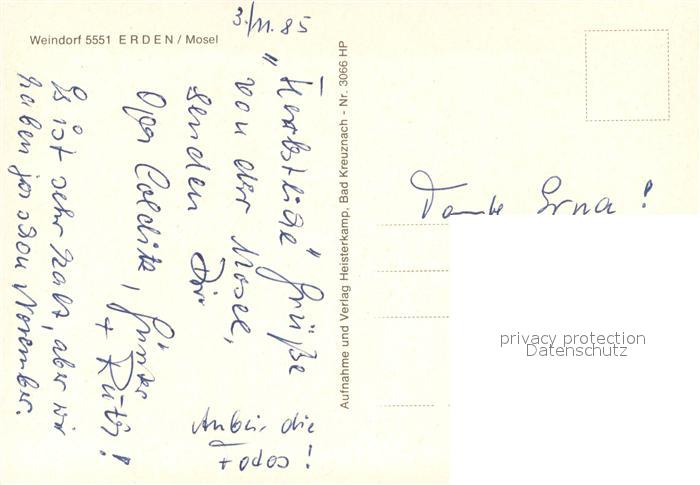 Weindorf 5551 ERDEN / Mosel
3./11.85
"Herbstliche" Grüße
von der Mosel,
senden Dir
Opa Colditz, Günter
+ Ruth!
Es ist sehr kalt, aber wir
haben ja schon November.
Anbei die
!
Aufnahme und Verlag Heisterkamp, Bad Kreuznach - Nr. 3066 HP
Tante Erna!
privacy protection
Datenschutz